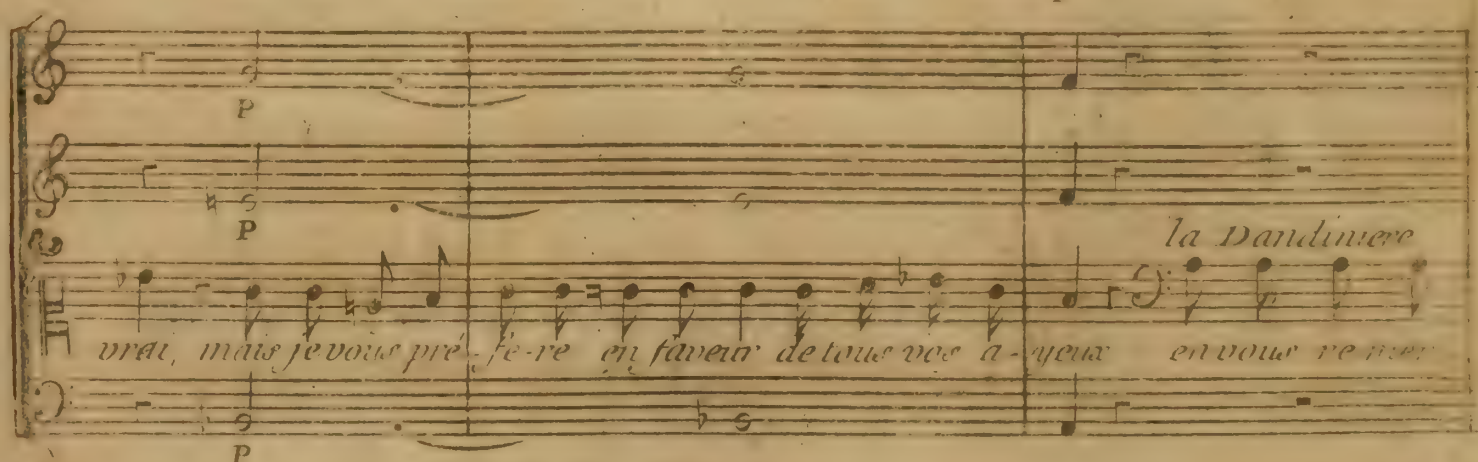 P
P
la Dandiniere
vrai, mais je vous pré-fe-re en faveur de tous vos a-yeux en vous re mer
P